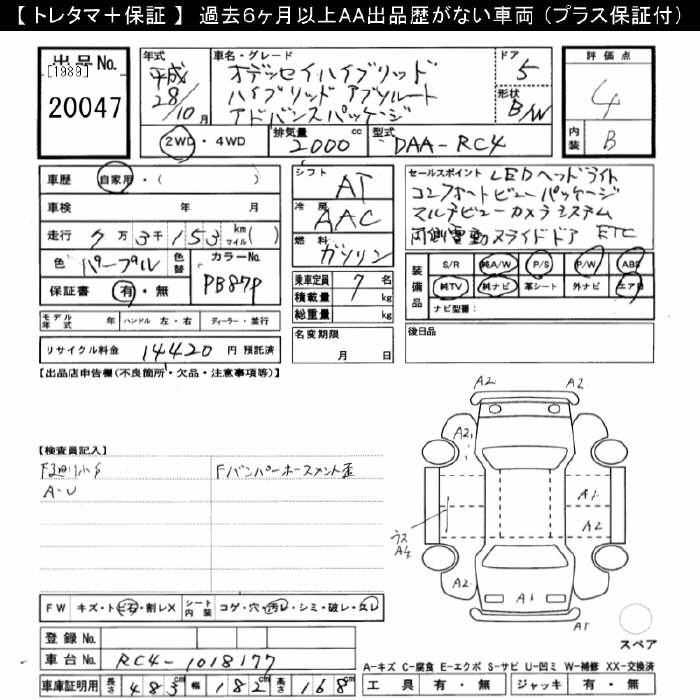 【 トレタマ＋保証 】 過去６ヶ月以上ＡＡ出品歴がない車両（プラス保証付）
出品No.
[1989]
20047
年式
平成
28/10 月
車名・グレード
オデッセイハイブリッド
ハイブリッド アブソルート
アドバンスパッケージ
ドア
5
形状
B/W
評価点
4
内装 B
2WD・4WD
排気量 2000 cc
型式 DAA-RC4
車歴 自家用・( )
車検 年 月
走行 7万3千153 km マイル( )
色 パープル 色替
カラーNo. PB87P
保証書 有・無
シフト AT
冷房 AAC
燃料 ガソリン
乗車定員 7 名
積載量 kg
総重量 kg
セールスポイント LEDヘッドライト
コンフォートビューパッケージ
マルチビューカメラシステム
両側電動スライドドア ETC
装備品
S/R 純A/W P/S P/W ABS
純TV 純ナビ 革シート 外ナビ エアB
ナビ型番：
モデル年式 年 ハンドル 左・右 ディーラー・並行
名変期限
月 日
後日品
リサイクル料金 14420 円 預託済
【出品店申告欄(不良箇所・欠品・注意事項等)】
【検査員記入】
Fバンパーホースメント歪
A-U
A2
A2
A2
A1
A2
ラス
A4
A2
A1
A1
FW キズ・トビ石・割レX シート内装 コゲ・穴・汚レ・シミ・破レ・スレ
スペア
登録No.
車台No. RC4-1018177
A-キズ C-腐食 E-エクボ S-サビ U-凹ミ W-補修 XX-交換済
車庫証明用 長さ 483 cm 幅 182 cm 高さ 168 cm
工具 有・無 ジャッキ 有・無